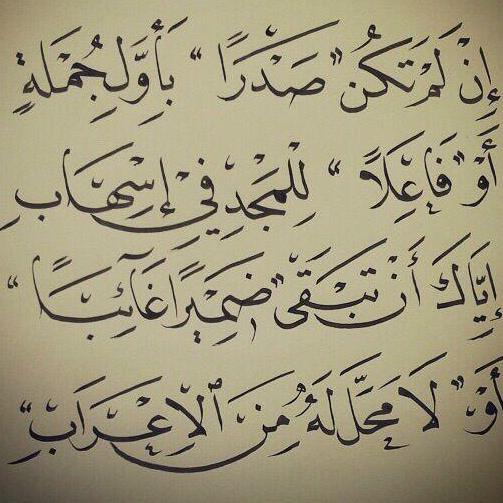 إِنْ لَمْ تَكُنْ "صَدْرًا" بَأَوَّلِ جُمْلَةٍ
أَوْ "فَاعِلًا" لِلْمَجْدِ فِي إِسْهَابِ
إِيَّاكَ أَنْ تَبْقَى "ضَمِيرًا غَائِبًا"
أَوْ "لَا مَحَلَّ لَهُ مِنَ الْإِعْرَابِ"